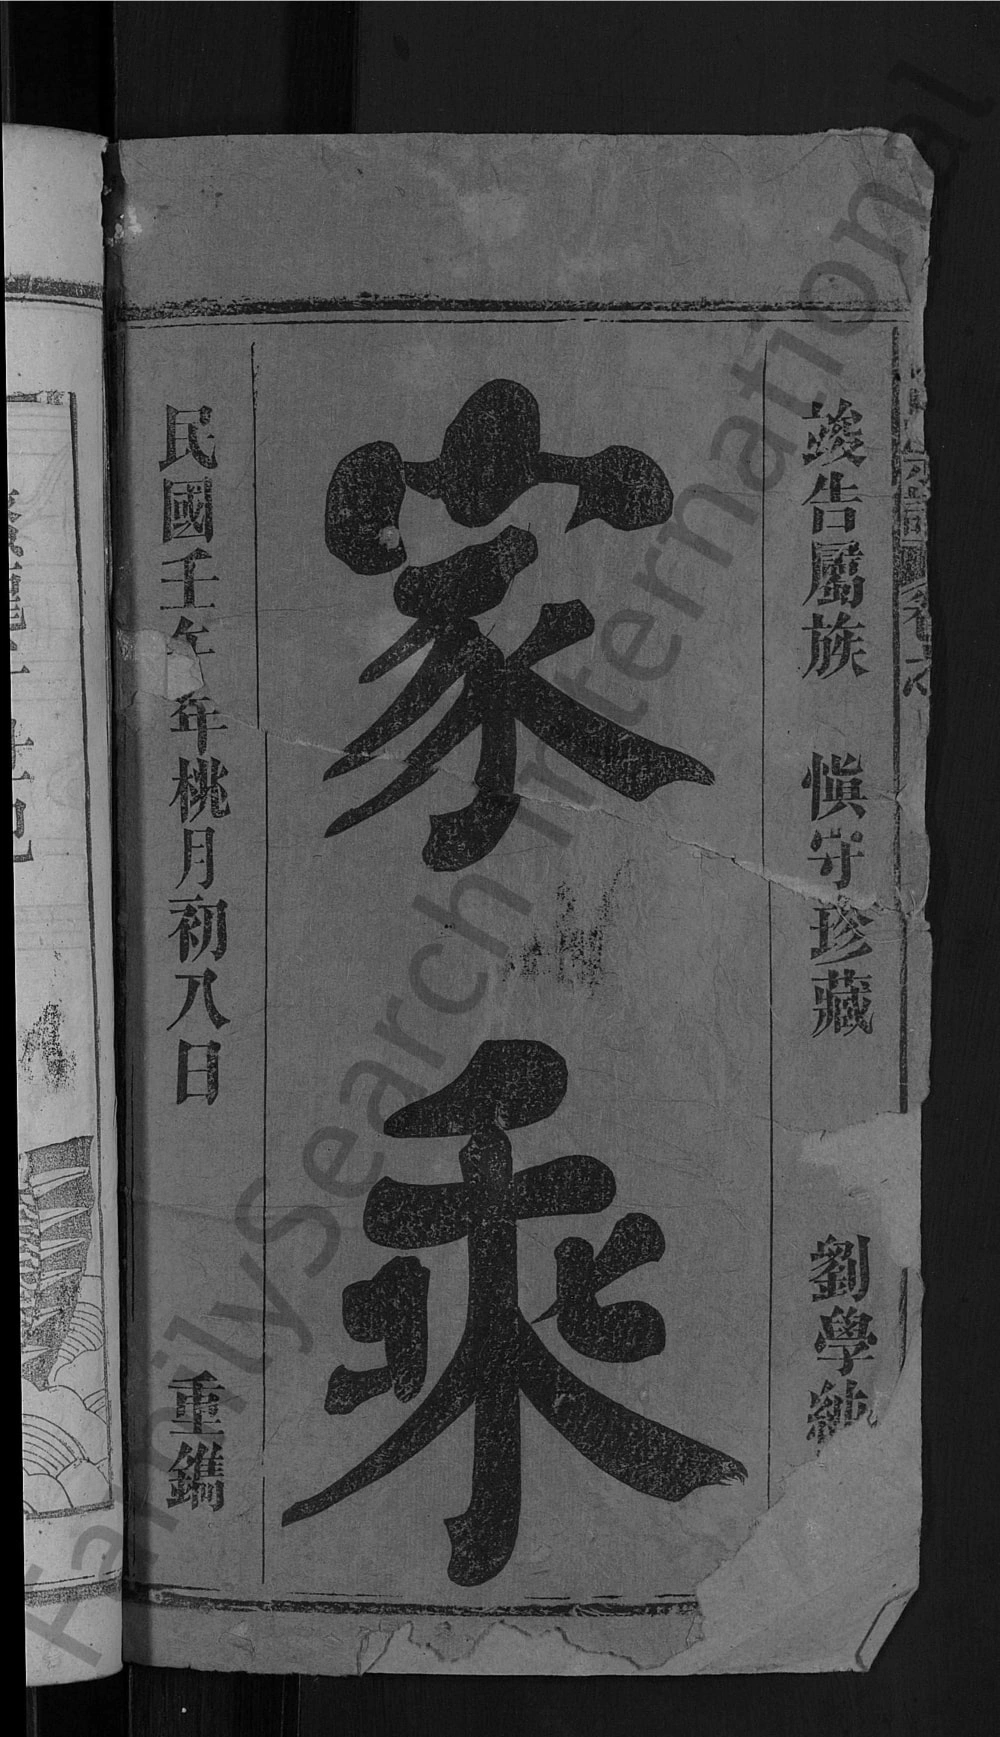 竣告屬族　慎守珍藏　劉學純
家乘
民國壬午年桃月初八日　重鐫
FamilySearch International